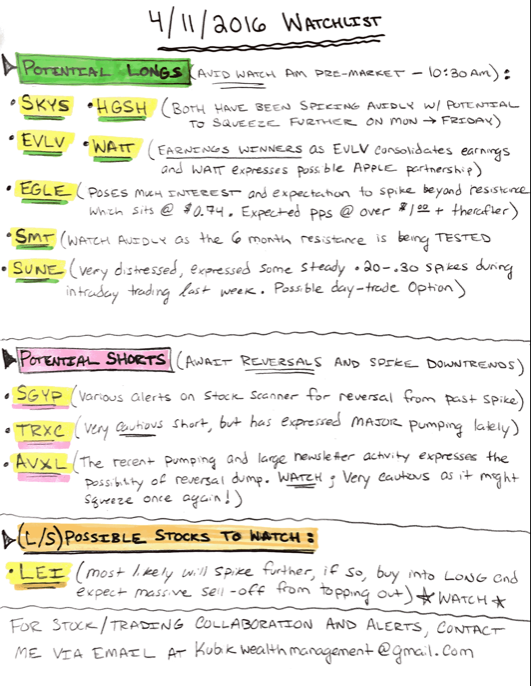 4/11/2016 WATCHLIST
POTENTIAL LONGS (AVID WATCH AM PRE-MARKET - 10:30AM):
• SKYS • HGSH (BOTH HAVE BEEN SPIKING AVIDLY W/ POTENTIAL
TO SQUEEZE FURTHER ON MON → FRIDAY)
• EVLV • WATT (EARNINGS WINNERS as EVLV consolidates earnings
and WATT expresses possible APPLE partnership)
• EGLE (POSES MUCH INTEREST and expectation to spike beyond resistance
which sits @ $0.74. Expected pps @ over $1.00 + thereafter)
• SMT (WATCH AVIDLY as the 6 month resistance is being TESTED
• SUNE (Very distressed, expressed some steady .20-.30 spikes during
intraday trading last week. Possible day-trade Option)
POTENTIAL SHORTS (AWAIT REVERSALS AND SPIKE DOWNTRENDS)
• SGYP (Various alerts on stock scanner for reversal from past spike)
• TRXC (Very cautious short, but has expressed MAJOR pumping lately)
• AVXL (The recent pumping and large newsletter activity expresses the
possibilty of reversal dump. WATCH; Very cautous as it might
squeeze once again!)
(L/S) POSSIBLE STOCKS TO WATCH:
• LEI (most likely will spike further, if so, buy into LONG and
expect massive sell-off from topping out) ★ WATCH ★
FOR STOCK/TRADING COLLABORATION AND ALERTS, CONTACT
ME VIA EMAIL AT Kubikwealthmanagement@gmail.com